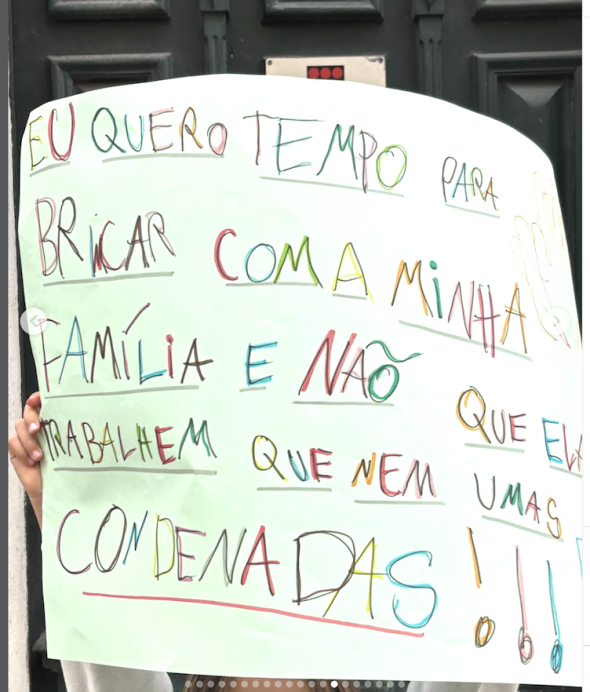 EU QUERO TEMPO PARA
BRiNCAR COM A MiNHA
FAMÍLiA E NÃO QUE
TRABALHEM QUE NEM UMAS
CONDENADAS!!!